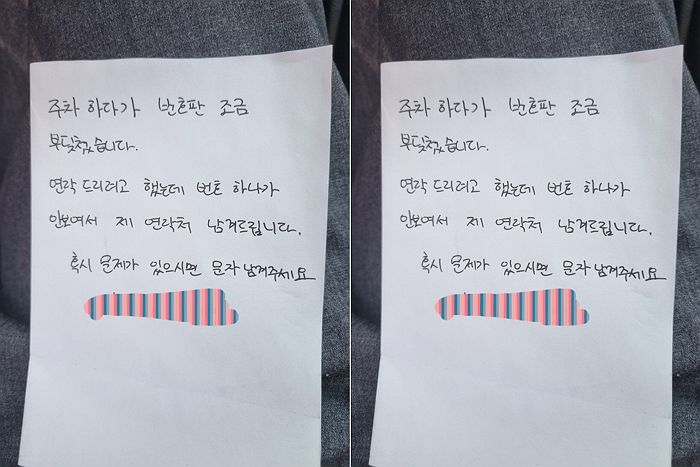 주차 하다가 번호판 조금
부딪쳤습니다.
연락 드리려고 했는데 번호 하나가
안보여서 제 연락처 남겨드립니다.
혹시 문제가 있으시면 문자 남겨주세요
주차 하다가 번호판 조금
부딪쳤습니다.
연락 드리려고 했는데 번호 하나가
안보여서 제 연락처 남겨드립니다.
혹시 문제가 있으시면 문자 남겨주세요